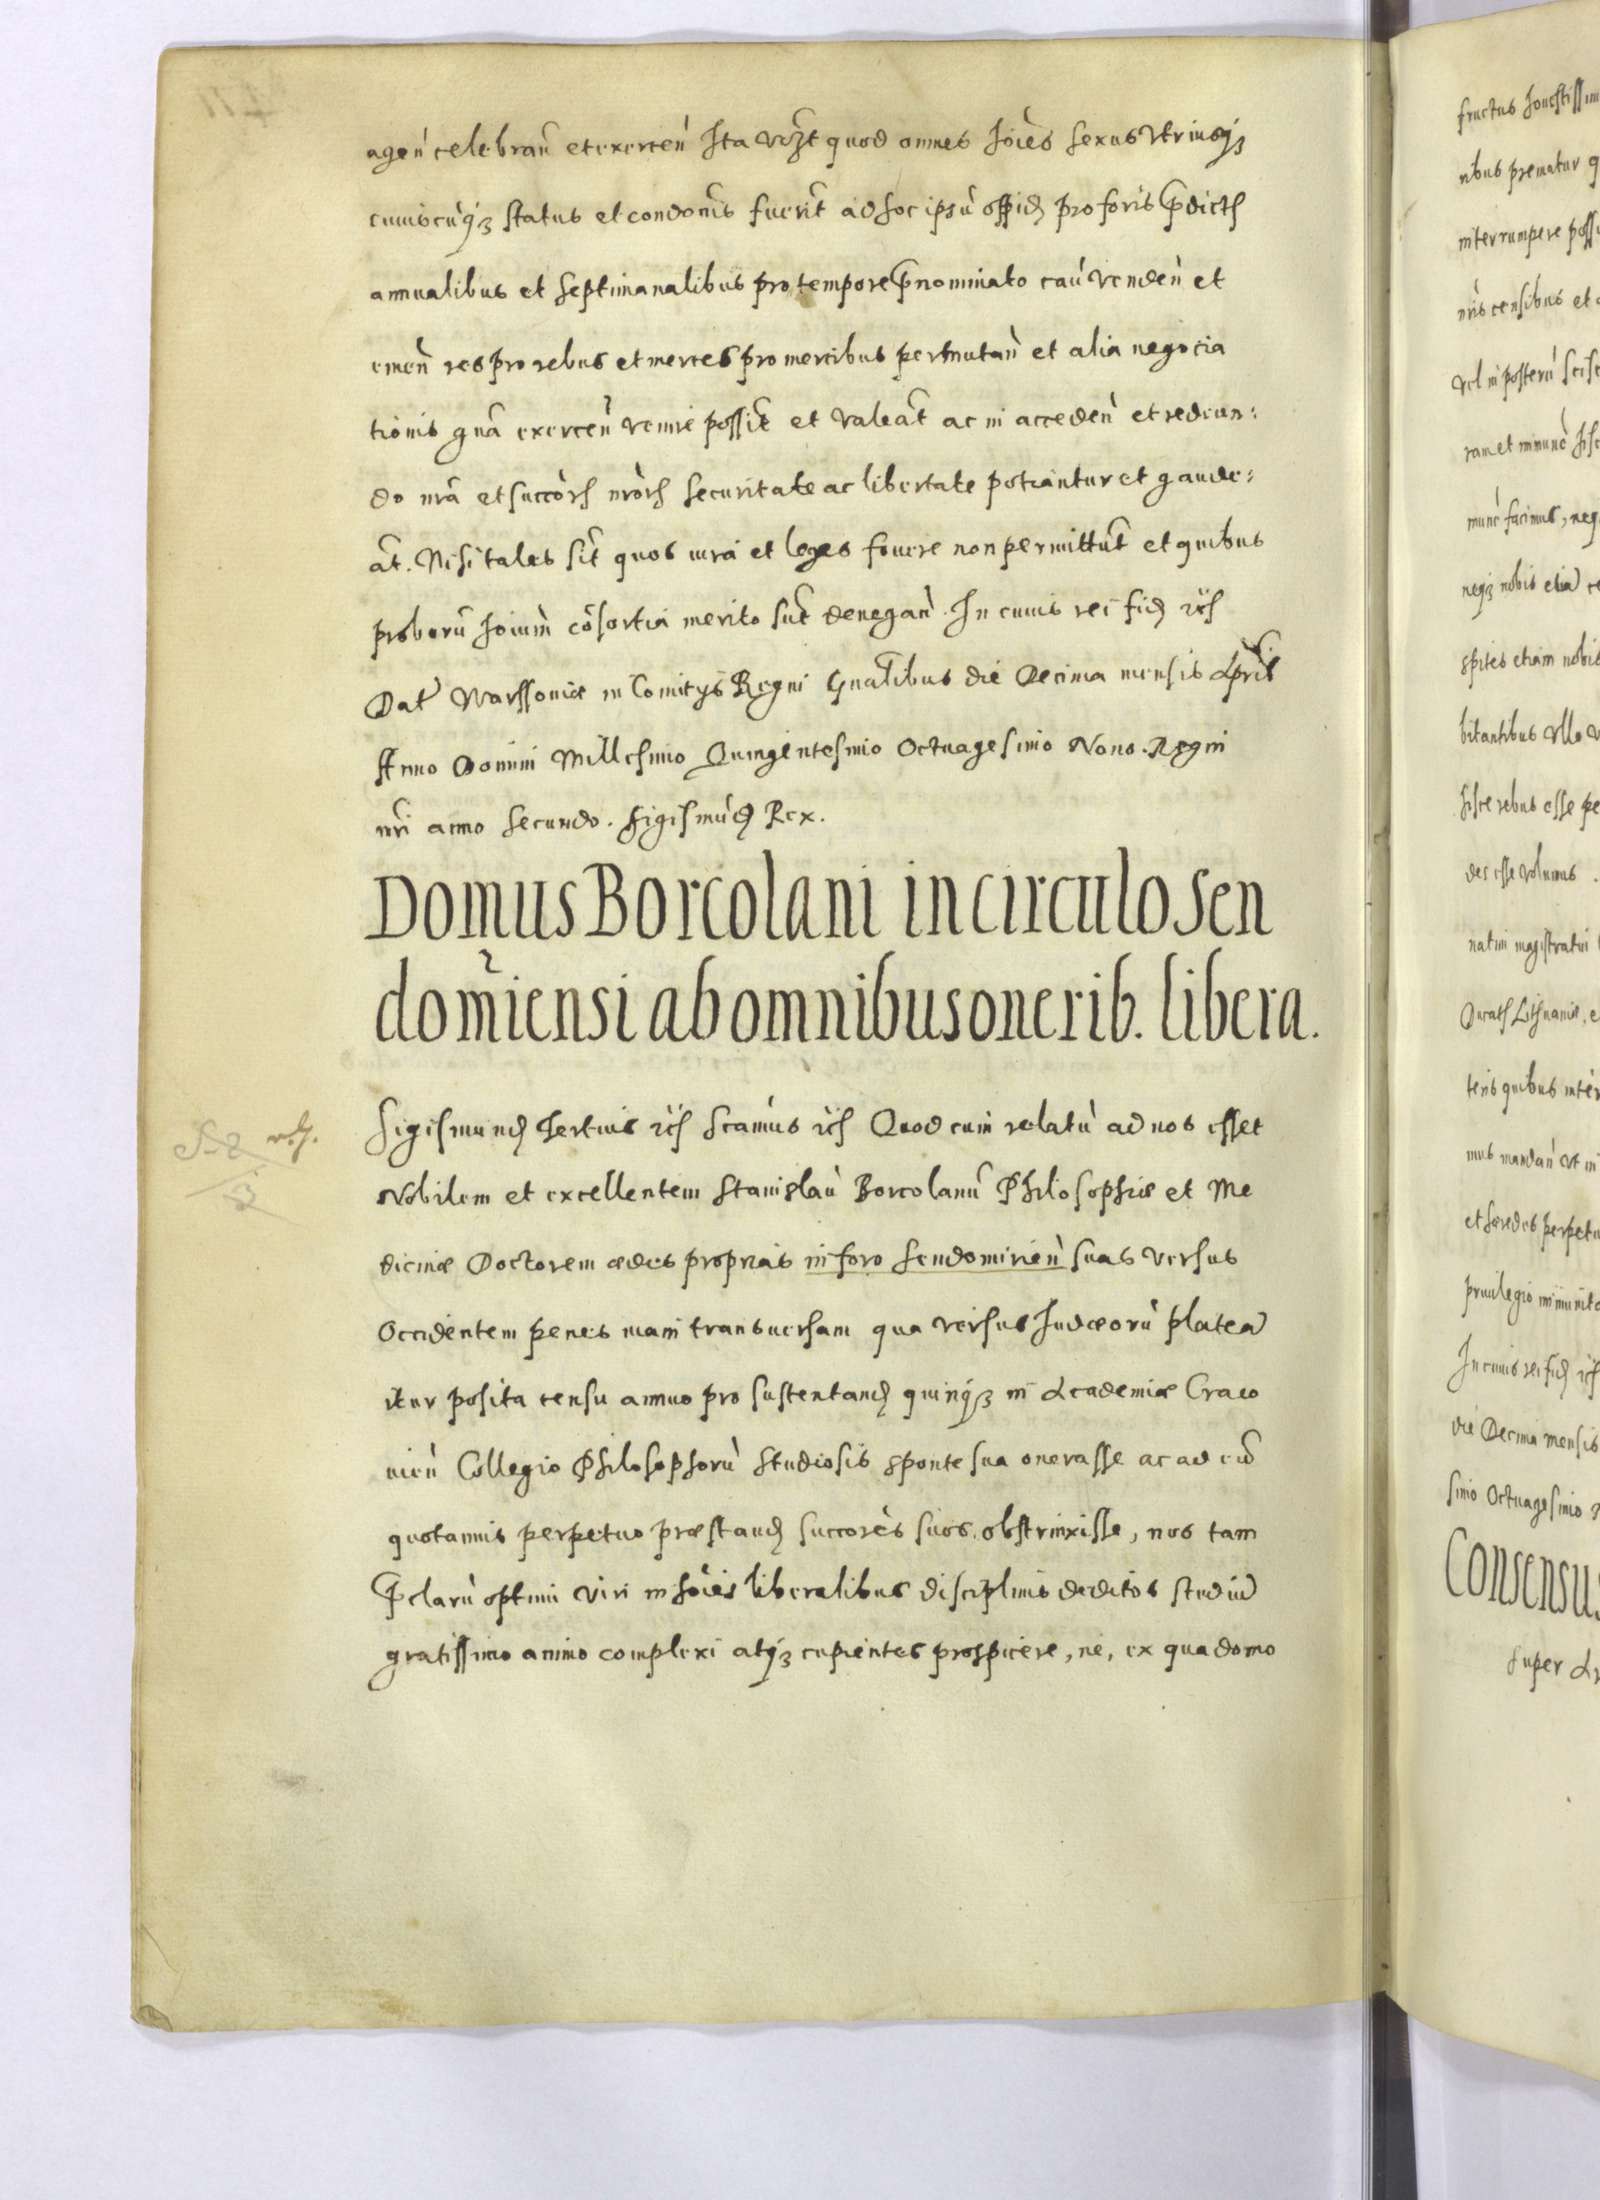 agen̄ celebran̄ et exercen̄ Ita vcꝫt quod omnes hoīes sexus vtriusqꝫ
cuiuscūqꝫ status et condonis fuerit̄ ad hoc ipsū oppid̨ pro foris p̄dicts
annualibus et septimanalibus pro tempore p̄nominato cau̇ venden̄ et
emen̄ res pro rebus et merces pro mercibus permutan̄ et alia negocia
tionis gn̄a exercen̄ venire possit̄ et valeat̄ ac in acceden̄ et redeun:
do nrā et succōrs nrōrs securitate ac libertate potiantur et gaude:
at̄. Nisi tales sit̄ quos iura et leges fouere non permittut̄ et quibus
proborū hoium̄ cōsortia merito sut̄ denegan̄. In cuius rei fid̨ ꝛc̄s
Dat̄ Warssouiæ in Comitijs Regni Gn̄alibus die Decima mensis April
Anno Domini Millesimo Quingentesimo Octuagesimo Nono. Regni
nr̄i anno secundo. Sigismūd̨ Rex.
Domus Borcolani in circulo Sen
dom̄iensi ab omnibus onerib. libera.
Sigismund̨ Tertius ꝛc̄s Scamus ꝛc̄s Quod cum relatū ad nos esset
Nobilem et excellentem Stanislaū Borcolanū Philosophiæ et Me
dicinæ Doctorem ædes proprias in foro Sendomirien̄ suas versus
Occidentem penes viam transuersam qua versus Iudæorū plateā
itur posita censu annuo pro sustentand̨ quinqꝫ in Academiæ Craco
uien̄ Collegio Philosophorū Studiosis sponte sua onerasse ac ad eū
quotannis perpetuo præstand̨ succores suos obstrinxisse, nos tam
p̄clarū optimi viri in hoīes liberalibus disciplinis deditos studiū
gratissimo animo complexi atqꝫ cupientes prospicere, ne, ex qua domo
fructus
ribus prematur
interrumpere
nris censibus et
vel in posterū
ram et
munē facimus,
neqꝫ nobis etiā
spites etiam nobis
bitantibus vllo
hisce rebus esse
des esse volumus.
natim magistratui
Ducats Lithuaniæ,
teris quibus
mus mandan̄ vt in
et hæredes
priuilegio
In cuius rei fid̨ ꝛc̄s
die Decima mensis
simo Octuagesimo
Consensus
super